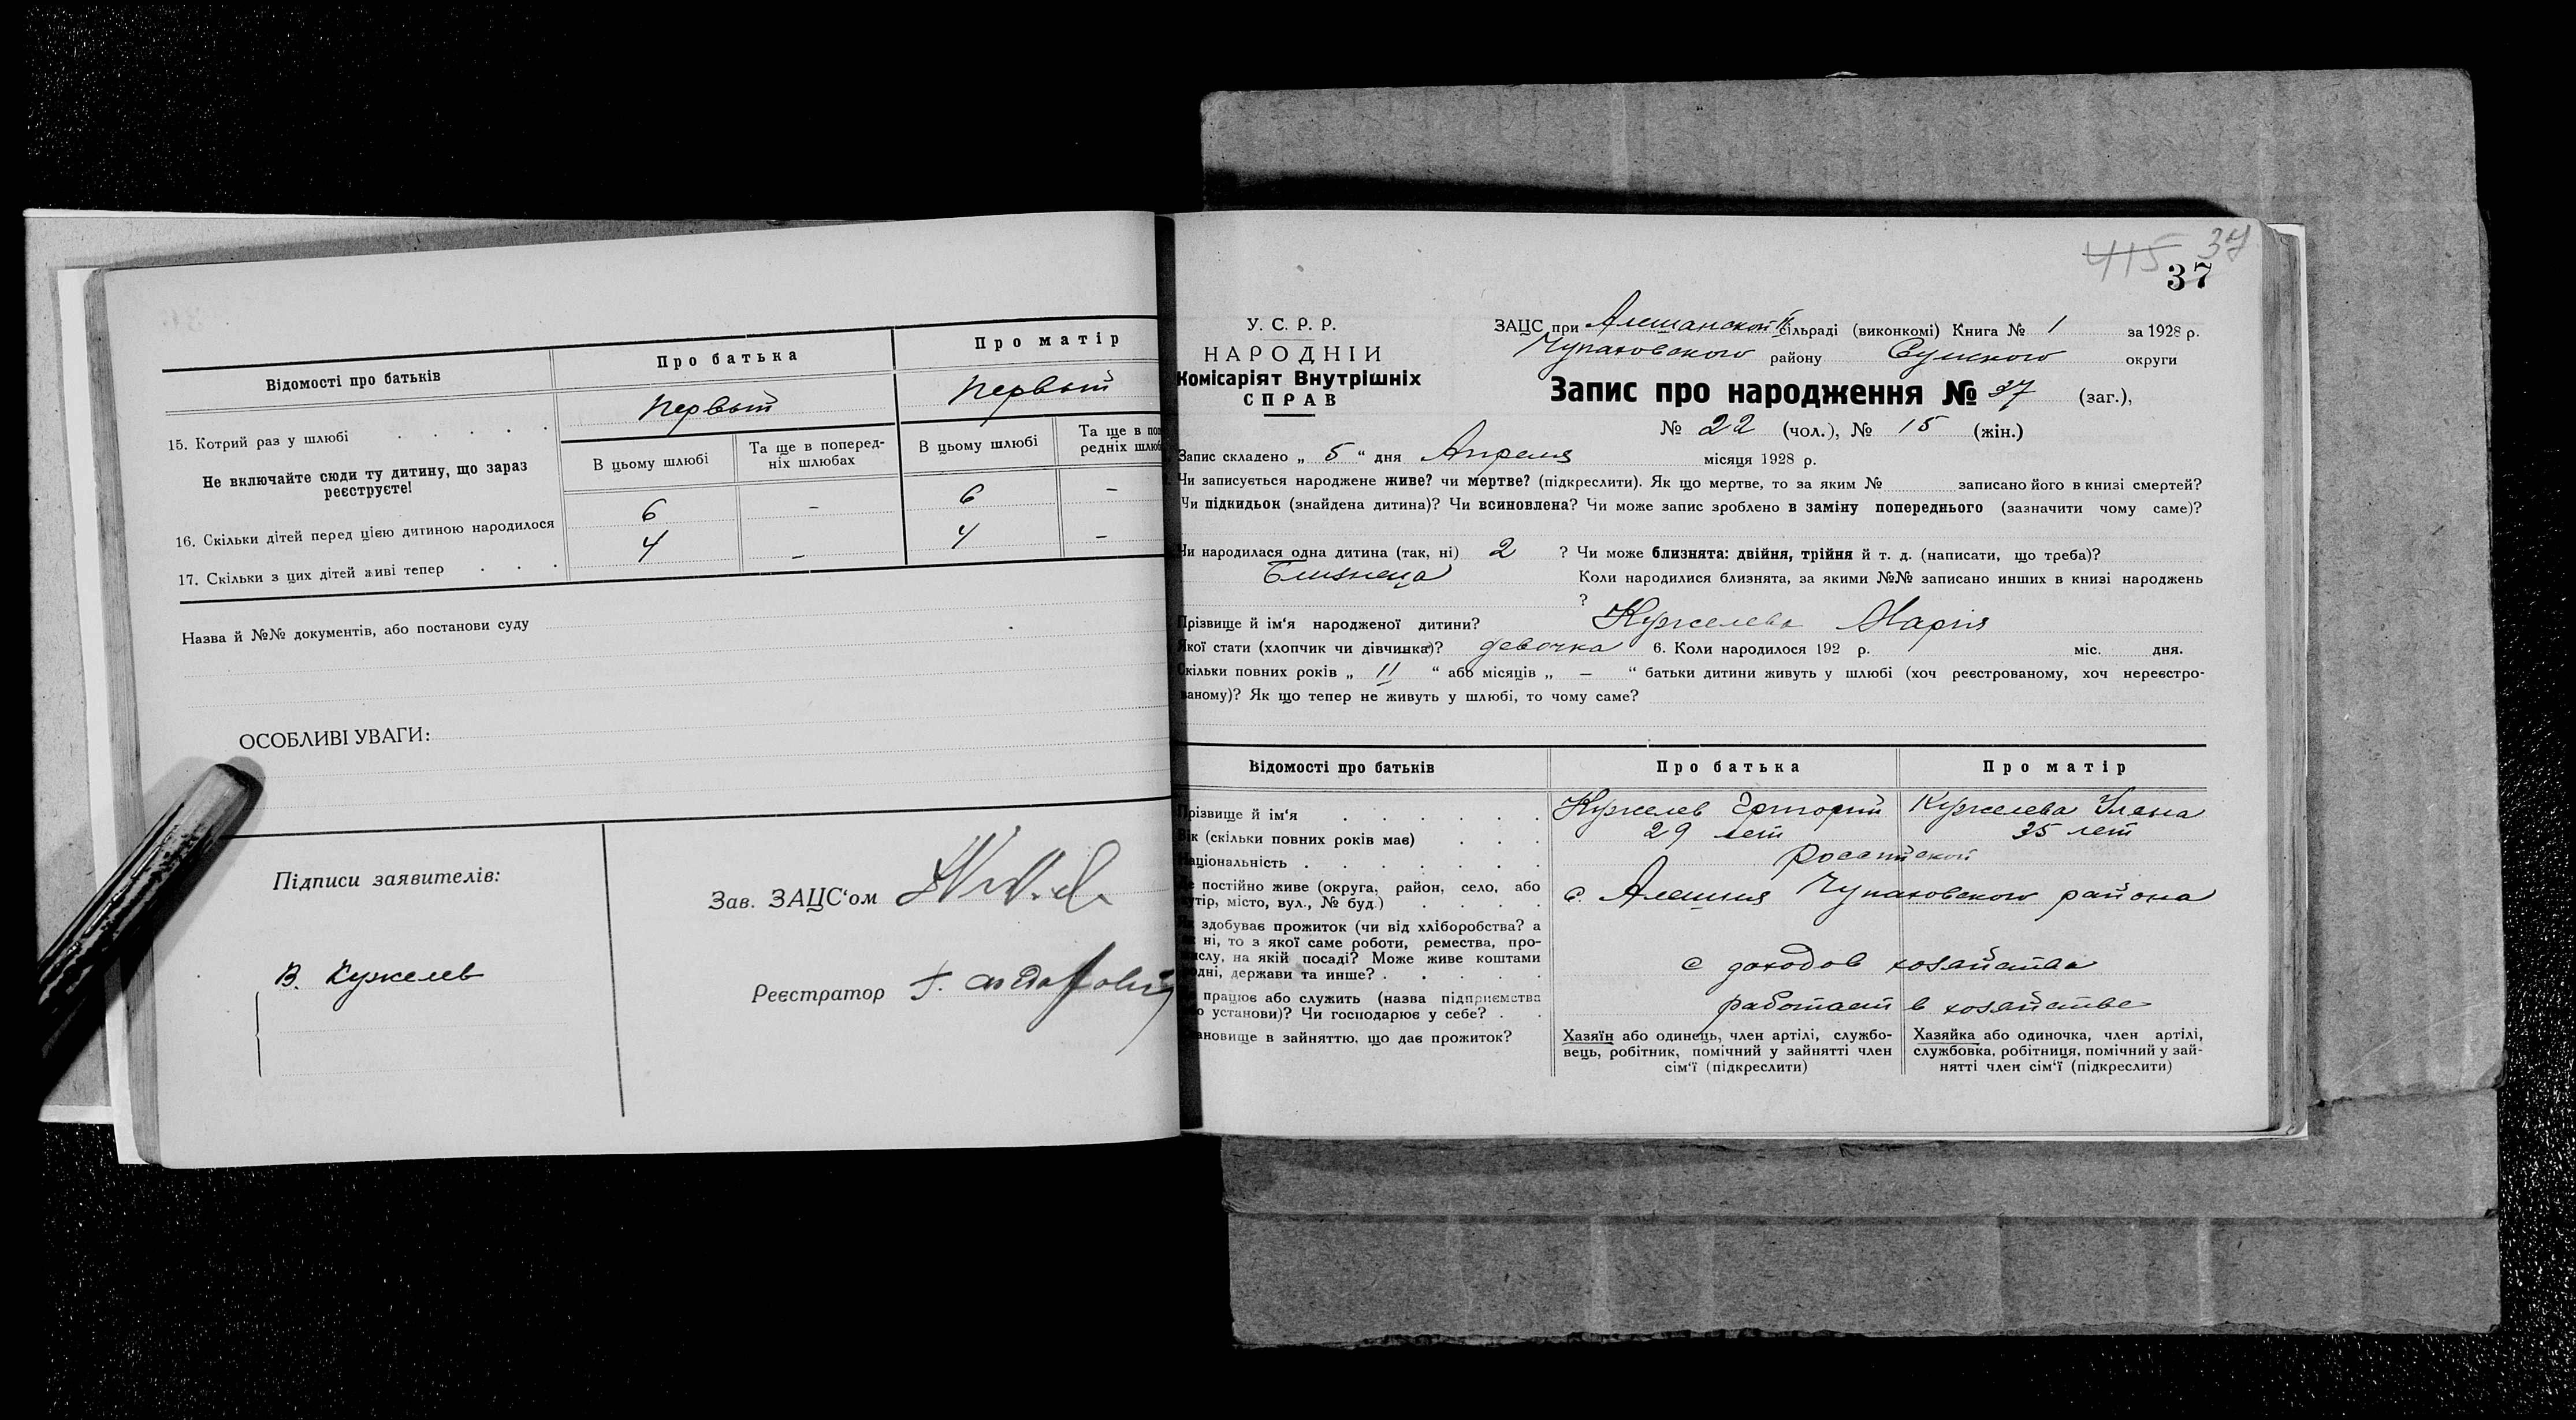 Відомості про батьків
Про батька
Про матір
15. Котрий раз у шлюбі
первый
первый
Не включайте сюди ту дитину, що зараз
реєструєте!
В цьому шлюбі
Та ще в поперед-
ніх шлюбах
В цьому шлюбі
Та ще в по
редніх шлю
16. Скільки дітей перед цією дитиною народилося
6
–
6
–
17. Скільки з цих дітей живі тепер
4
–
4
–
Назва й №№ документів, або постанови суду
ОСОБЛИВІ УВАГИ:
Підписи заявителів:
В. Кужелев
Зав. ЗАЦС‘ом
Реєстратор
415 37
37
У. С. Р. Р.
НАРОДНІЙ
Комісаріят Внутрішніх
СПРАВ
ЗАЦС при Алешанской II сільраді (виконкомі) Книга № 1 за 1928 р.
Чупаховского району Сумского округи
Запис про народження № 37 (заг.),
№ 22 (чол.), № 15 (жін.)
Запис складено „ 5 “ дня Апреля місяця 1928 р.
Чи записується народжене живе? чи мертве? (підкреслити). Як що мертве, то за яким № записано його в книзі смертей?
Чи підкидьок (знайдена дитина)? Чи всиновлена? Чи може запис зроблено в заміну попереднього (зазначити чому саме)?
Чи народилася одна дитина (так, ні) 2 ? Чи може близнята: двійня, трійня й т. д. (написати, що треба)?
Близнеца Коли народилися близнята, за якими №№ записано инших в книзі народжень
?
Прізвище й ім‘я народженої дитини? Кужелева Мария
Якої стати (хлопчик чи дівчинка)? девочка 6. Коли народилося 192 р. міс. дня.
Скільки повних років „ 11 “ або місяців „ – “ батьки дитини живуть у шлюбі (хоч реєстрованому, хоч нереєстро-
ваному)? Як що тепер не живуть у шлюбі, то чому саме?
Відомості про батьків
Про батька
Про матір
Прізвище й ім‘я
Кужелев Григорий
Кужелева Улена
Вік (скільки повних років має)
29 лет
35 лет
Національність
Российской
постійно живе (округа, район, село, або
хутір, місто, вул., № буд.)
с. Алешня Чупаховского района
здобуває прожиток (чи від хліборобства? а
ні, то з якої саме роботи, ремества, про-
мислу, на якій посаді? Може живе коштами
рідні, держави та инше?
С доходов хозяйства
працює або служить (назва підприємства
установи)? Чи господарює у себе?
работает в хозяйстве
становище в зайняттю, що дає прожиток?
Хазяїн або одинець, член артілі, службо-
вець, робітник, помічний у зайнятті член
сім‘ї (підкреслити)
Хазяйка або одиночка, член артілі,
службовка, робітниця, помічний у зай-
нятті член сім‘ї (підкреслити)